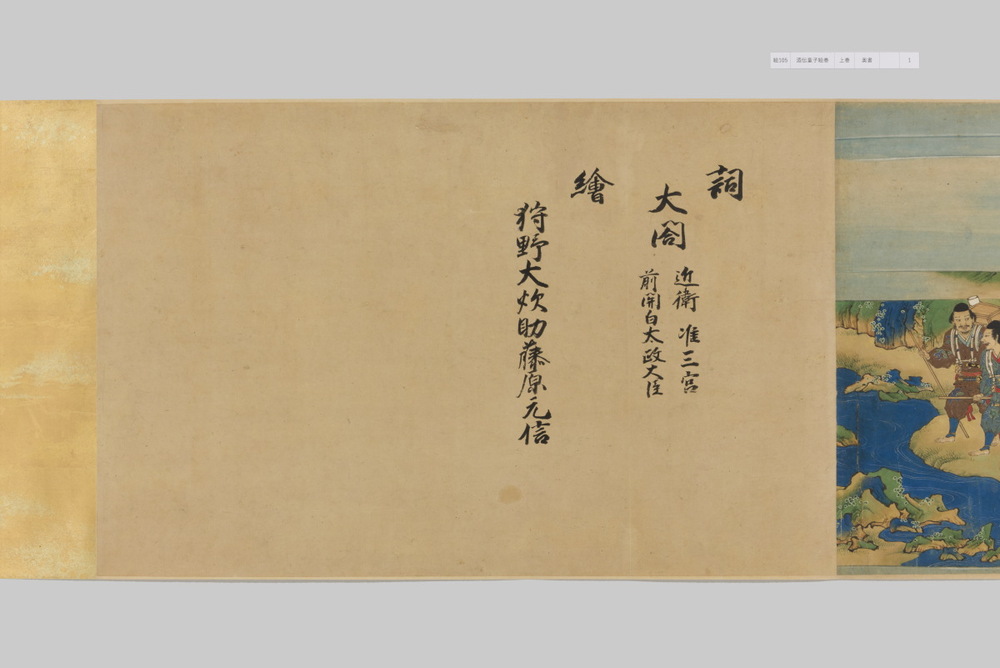 詞
大閤
近衛 准三宮
前関白太政大臣
繪
狩野大炊助藤原元信
絵105 酒伝童子絵巻 上巻 1